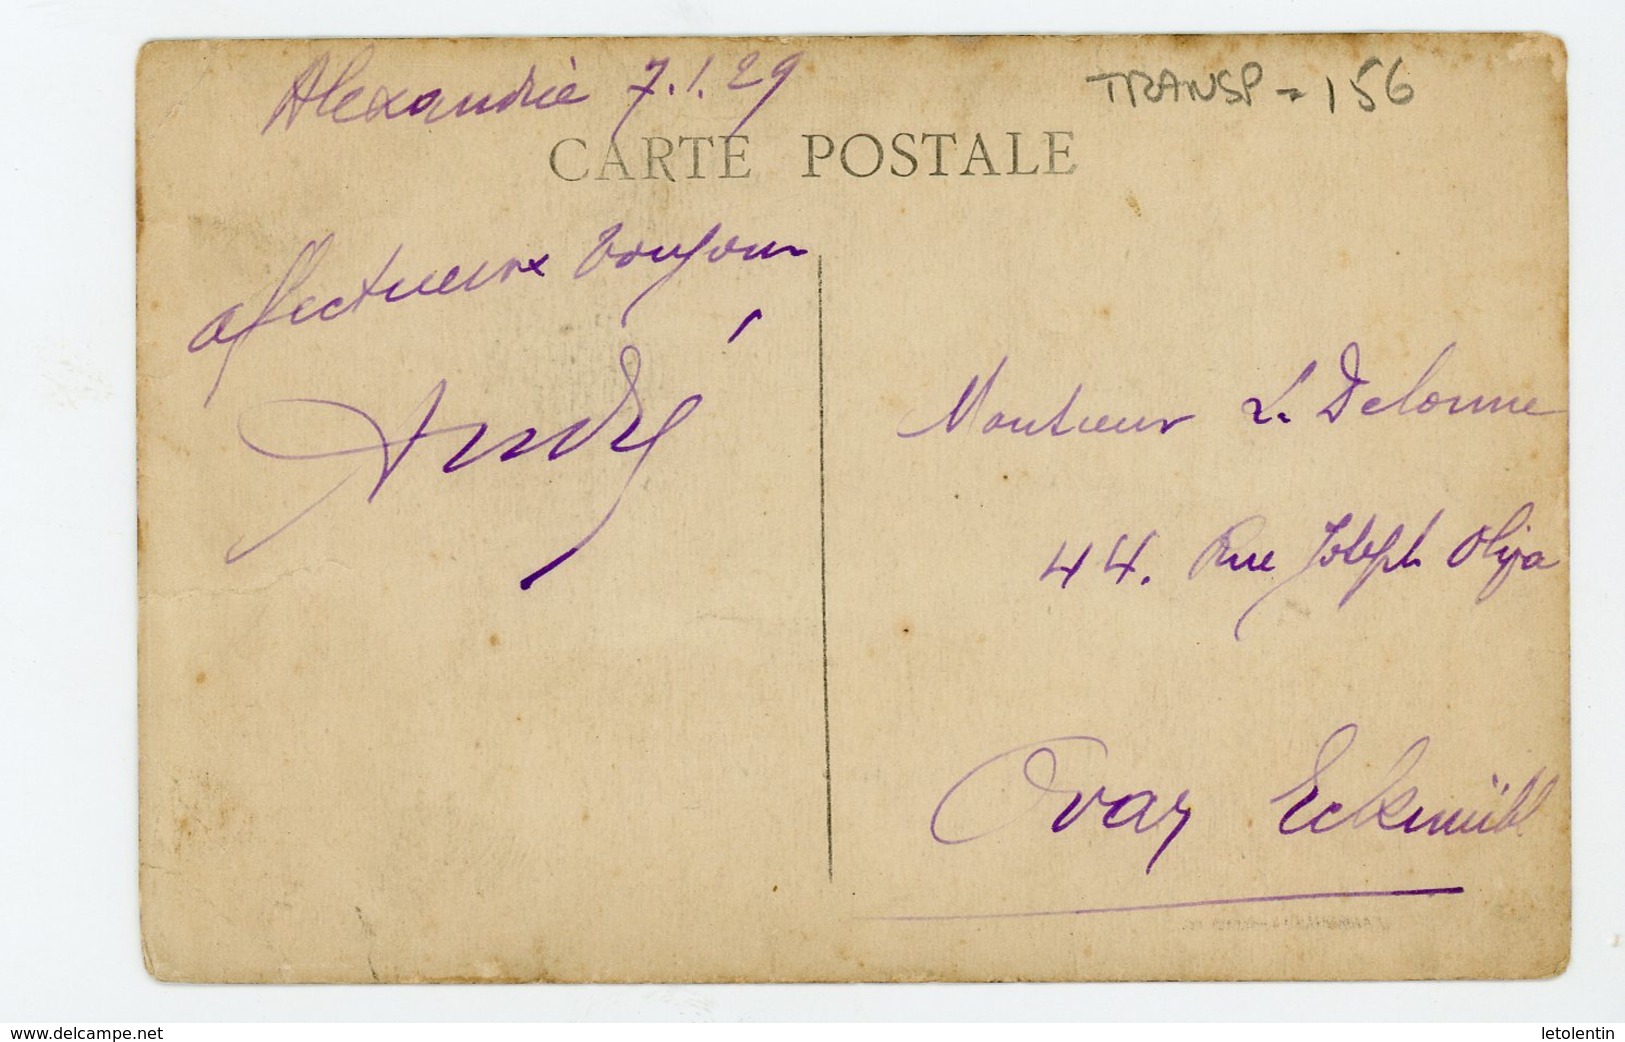 Alexandrie 7.1.29
TRANSP - 156
CARTE POSTALE
affectueux bonjour
André
Monsieur L. Delonne
44. Rue Joseph Oliva
Oran Eckmühl
www.delcampe.net
letolentin